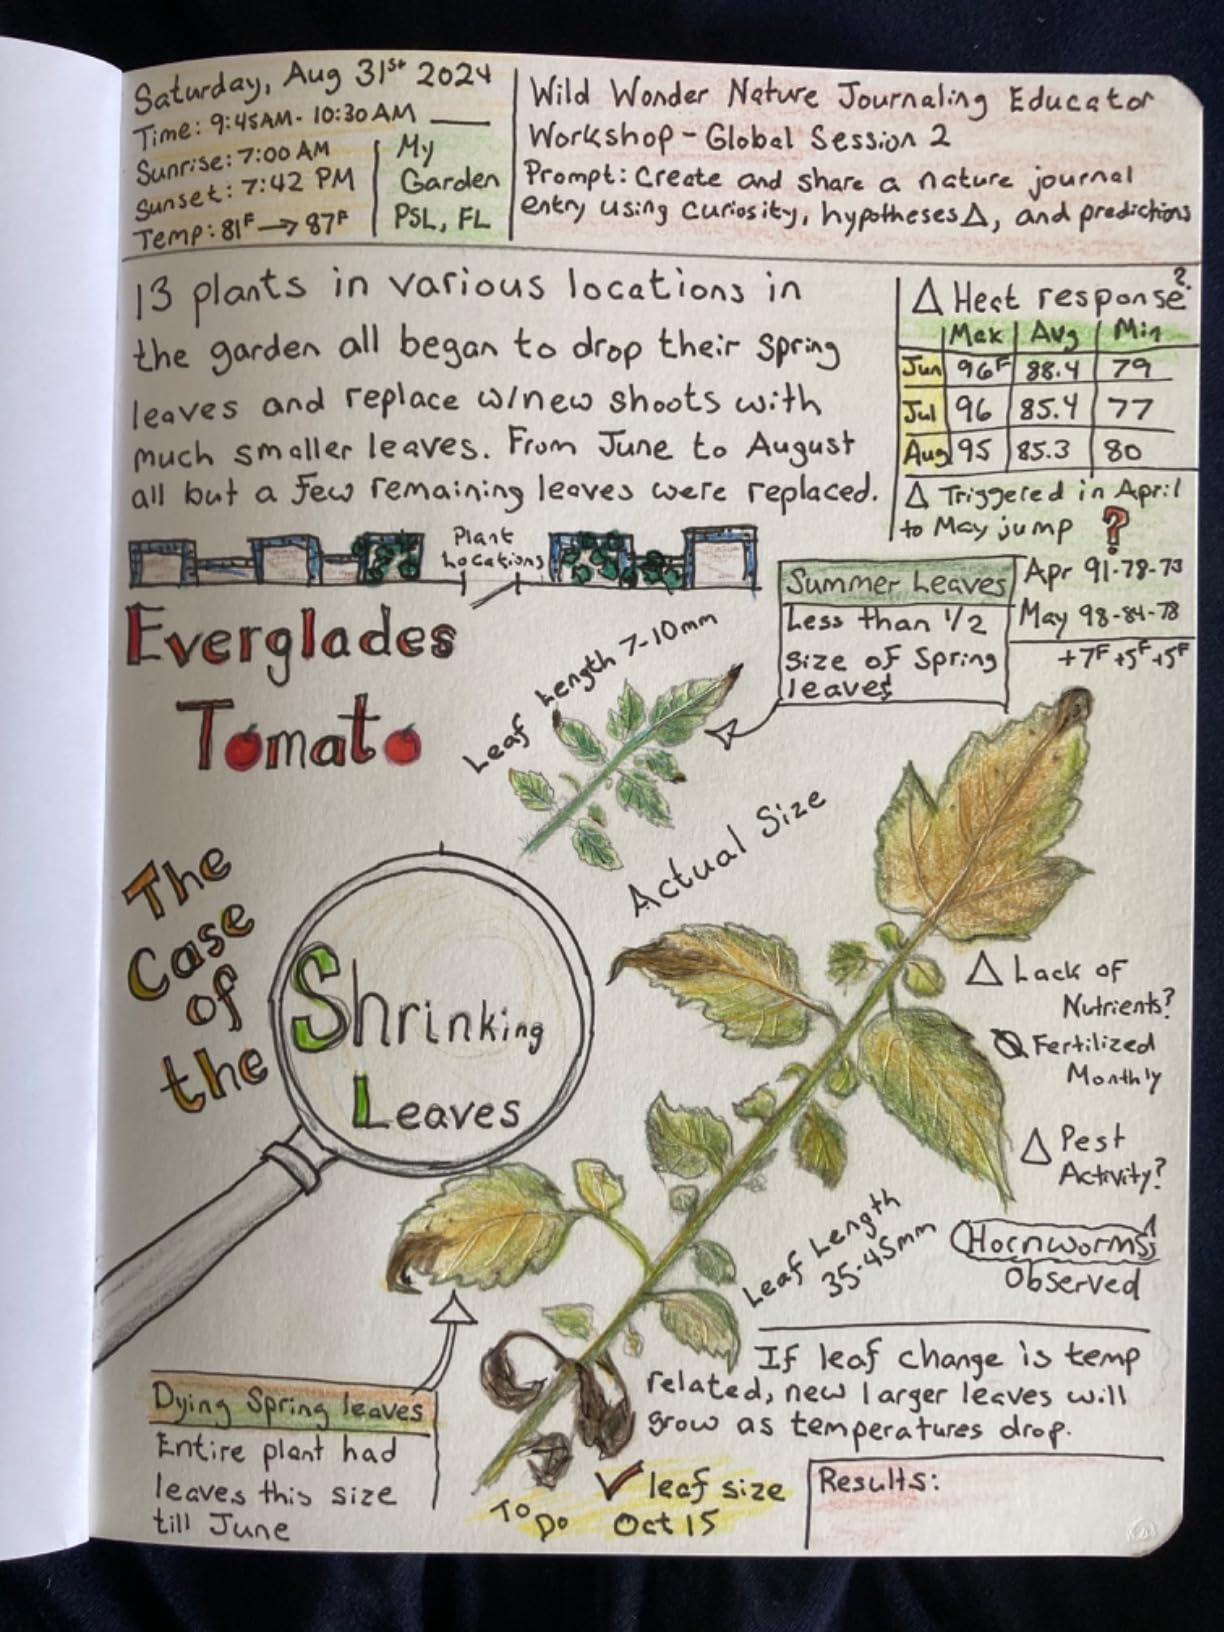 Saturday, Aug 31st 2024
Time: 9:45AM - 10:30AM
Sunrise: 7:00 AM
Sunset: 7:42 PM
Temp: 81F → 87F
My
Garden
PSL, FL
Wild Wonder Nature Journaling Educator
Workshop - Global Session 2
Prompt: Create and share a nature journal
entry using curiosity, hypotheses Δ, and predictions
13 plants in various locations in
the garden all began to drop their spring
leaves and replace w/new shoots with
much smaller leaves. From June to August
all but a few remaining leaves were replaced.
Δ Heat response?
Max Avg Min
Jun 96F 88.4 79
Jul 96 85.4 77
Aug 95 85.3 80
Δ Triggered in April
to May jump ?
Apr 91-78-73
May 98-84-78
+7F +5F +5F
Plant
Locations
Everglades
Tomato
Summer Leaves
Less than 1/2
size of Spring
leaves
Leaf Length 7-10mm
Actual Size
The
Case
of
the
Shrinking
Leaves
Δ Lack of
Nutrients?
Fertilized
Monthly
Δ Pest
Activity?
Hornworms
Observed
Leaf Length
35-45mm
If leaf change is temp
related, new larger leaves will
grow as temperatures drop.
Dying Spring leaves
Entire plant had
leaves this size
till June
To Do
✓ leaf size
Oct 15
Results: